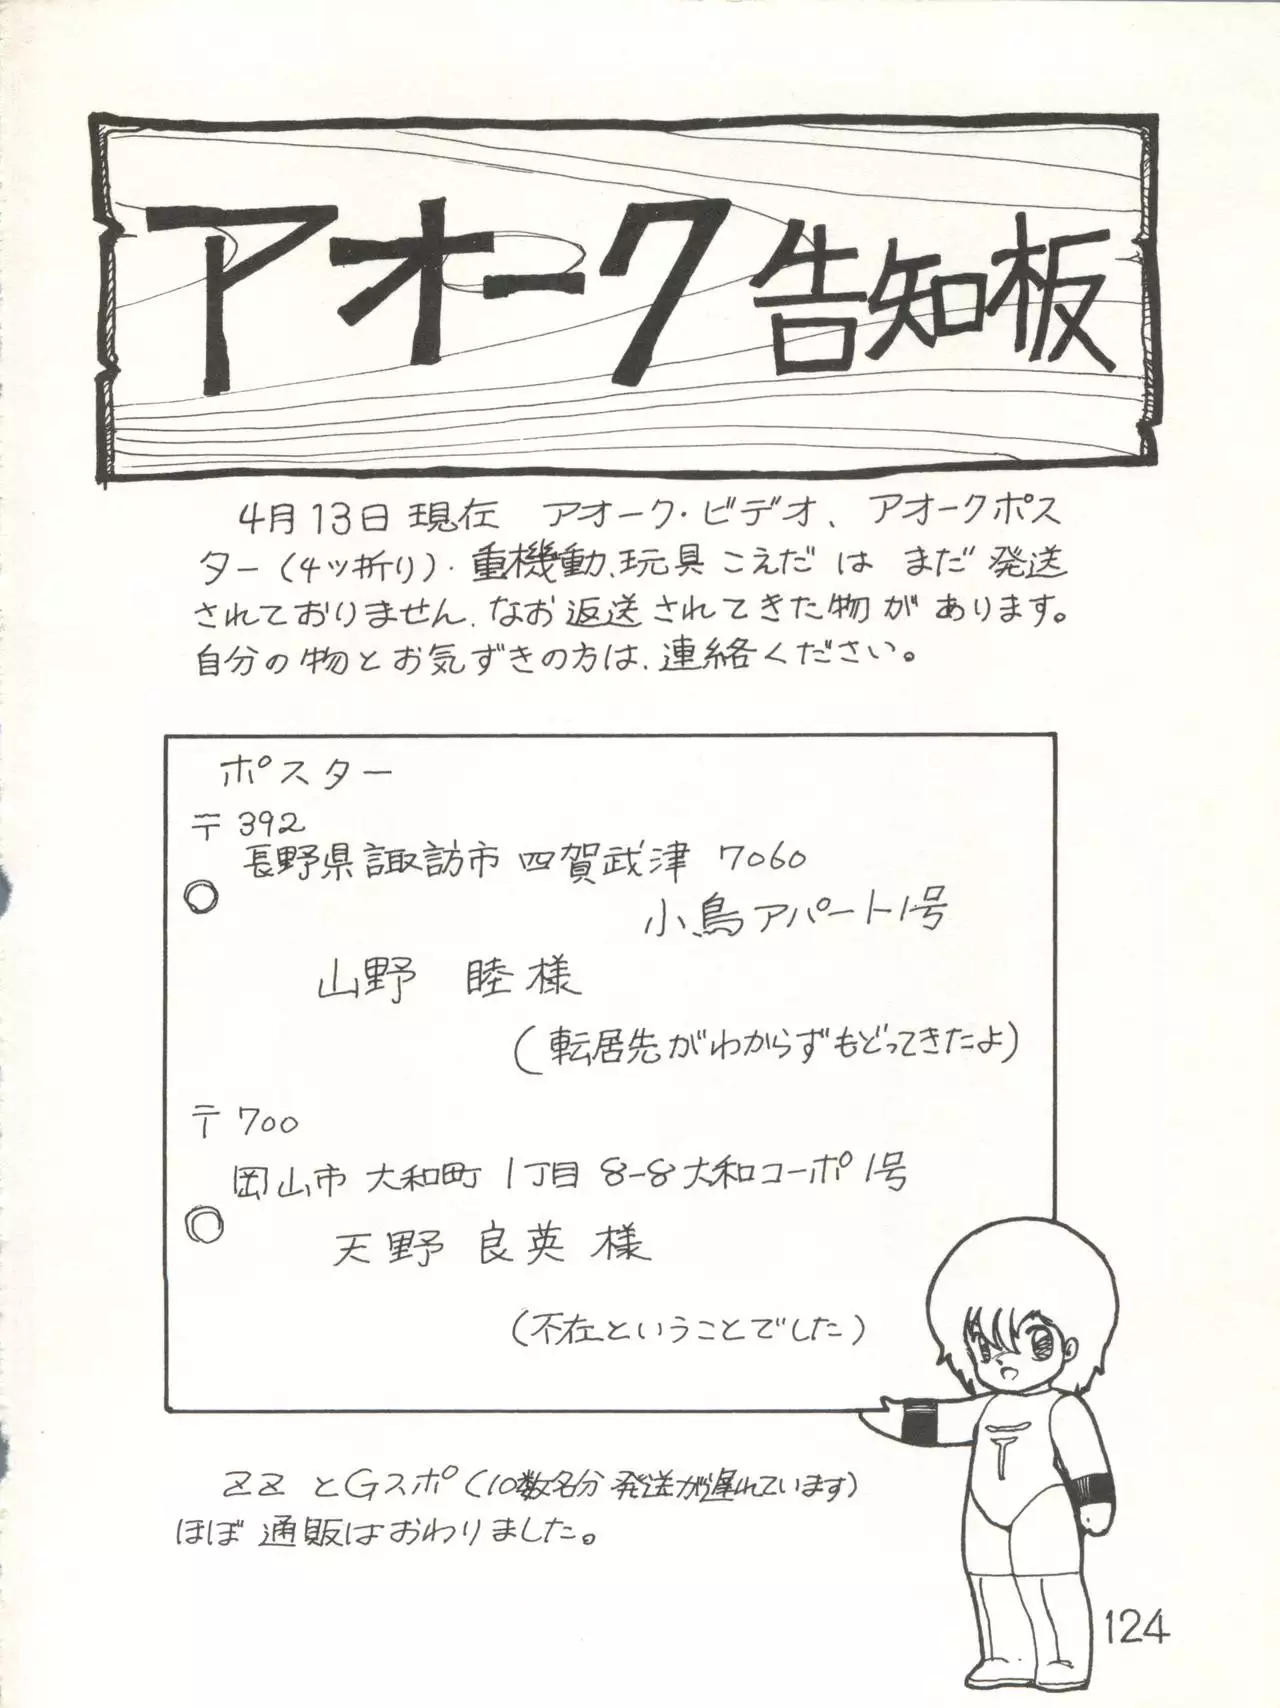 アオーク告知板
4月13日現在 アオーク・ビデオ、アオークポス
ター(4ッ折り)・重機動、玩具こえだは まだ発送
されておりません、なお返送されてきた物があります。
自分の物とお気ずきの方は、連絡ください。
ポスター
〒392
長野県諏訪市四賀武津 7060
小鳥アパート1号
山野 睦様
(転居先がわからずもどってきたよ)
〒700
岡山市大和町1丁目8-8大和コーポ1号
天野良英様
(不在ということでした)
ZZとGスポ(10数名分発送が遅れています)
ほぼ通販はおわりました。
〒
124